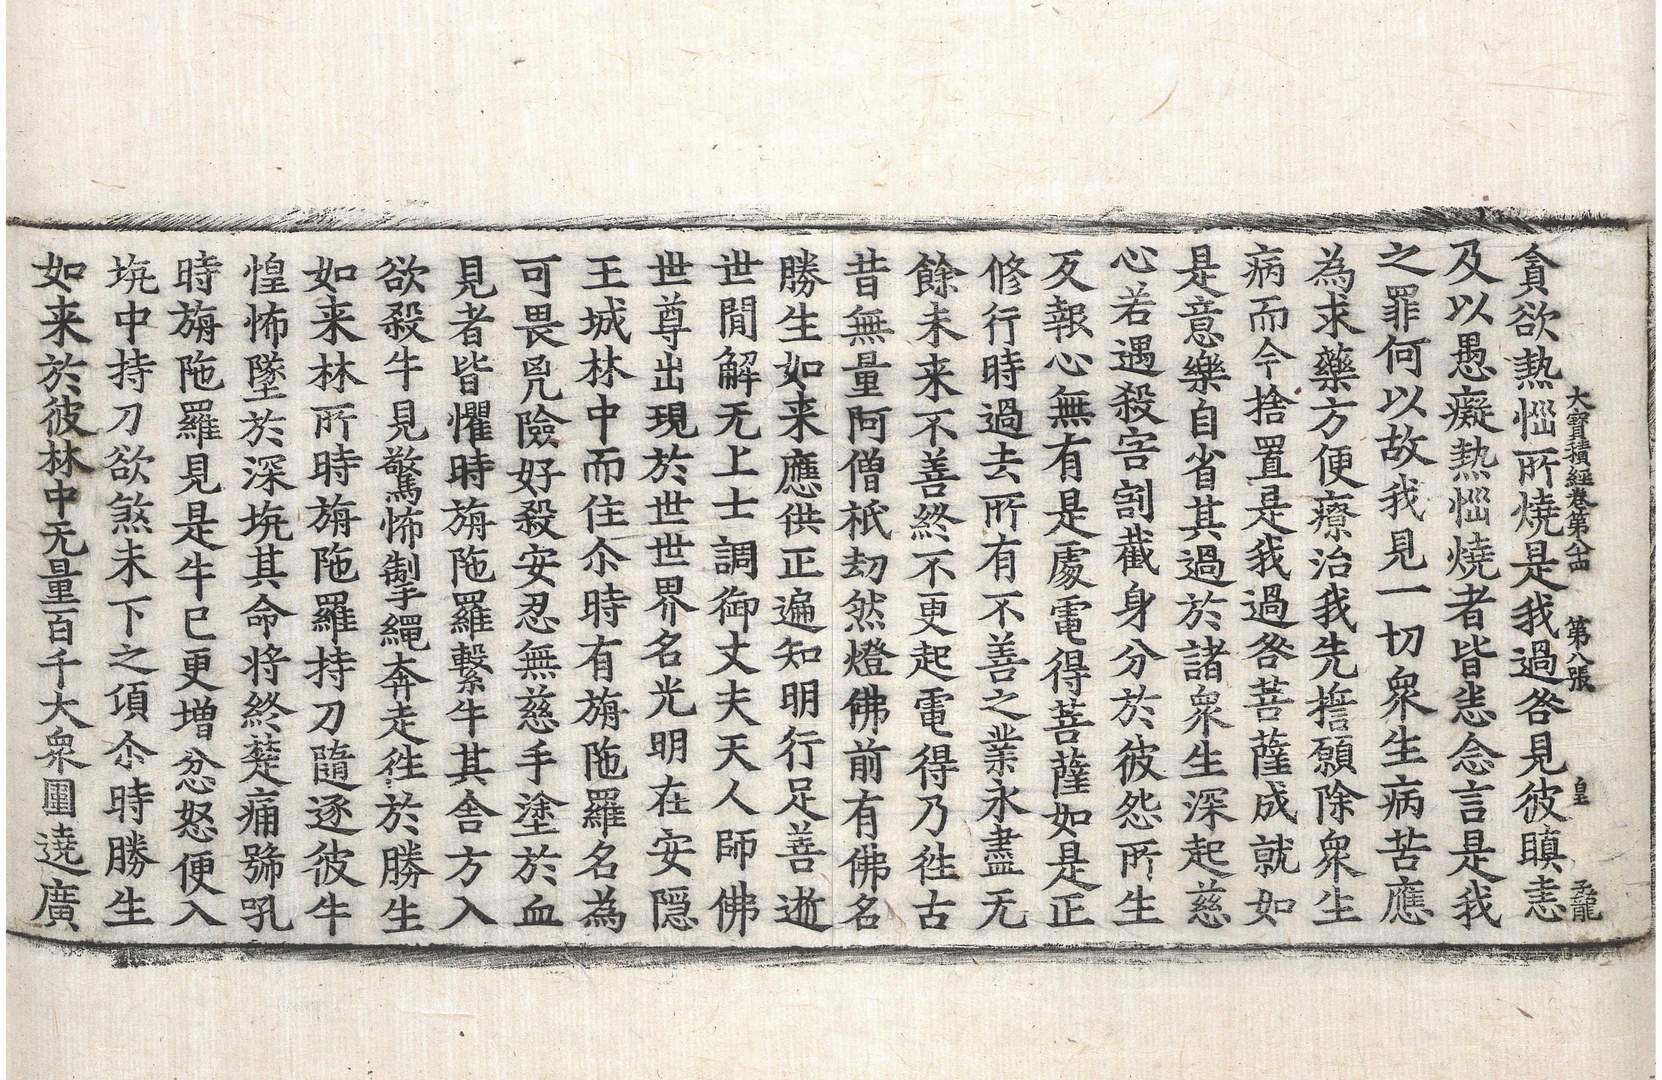 大寶積經卷第八十四 第八張 皇 孟龍
貪欲熱惱所燒是我過咎見彼瞋恚
及以愚癡熱惱燒者皆恚念言是我
之罪何以故我見一切衆生病苦應
為求藥方便療治我先擔願除衆生
病而今捨置是我過咎菩薩成就如
是意樂自省其過於諸衆生深起慈
心若遇殺害割截身分於彼怨所生
反報心無有是處電得菩薩如是正
修行時過去所有不善之業永盡无
餘未来不善終不更起電得乃徃古
昔無量阿僧祇劫然燈佛前有佛名
勝生如来應供正遍知明行足善逝
世閒解无上士調御丈夫天人師佛
世尊出現於世世界名光明在安隠
王城林中而住尒時有旃陁羅名為
可畏兇險好殺安忍無慈手塗於血
見者皆懼時旃陁羅繫牛其舎方入
欲殺牛見驚怖掣繩奔走徃於勝生
如来林所時旃陁羅持刀隨逐彼牛
惶怖墜於深坑其命将終楚痛號吼
時旃陁羅見是牛已更增忿怒便入
坑中持刀欲煞未下之頃尒時勝生
如来於彼林中无量百千大衆圍遶廣